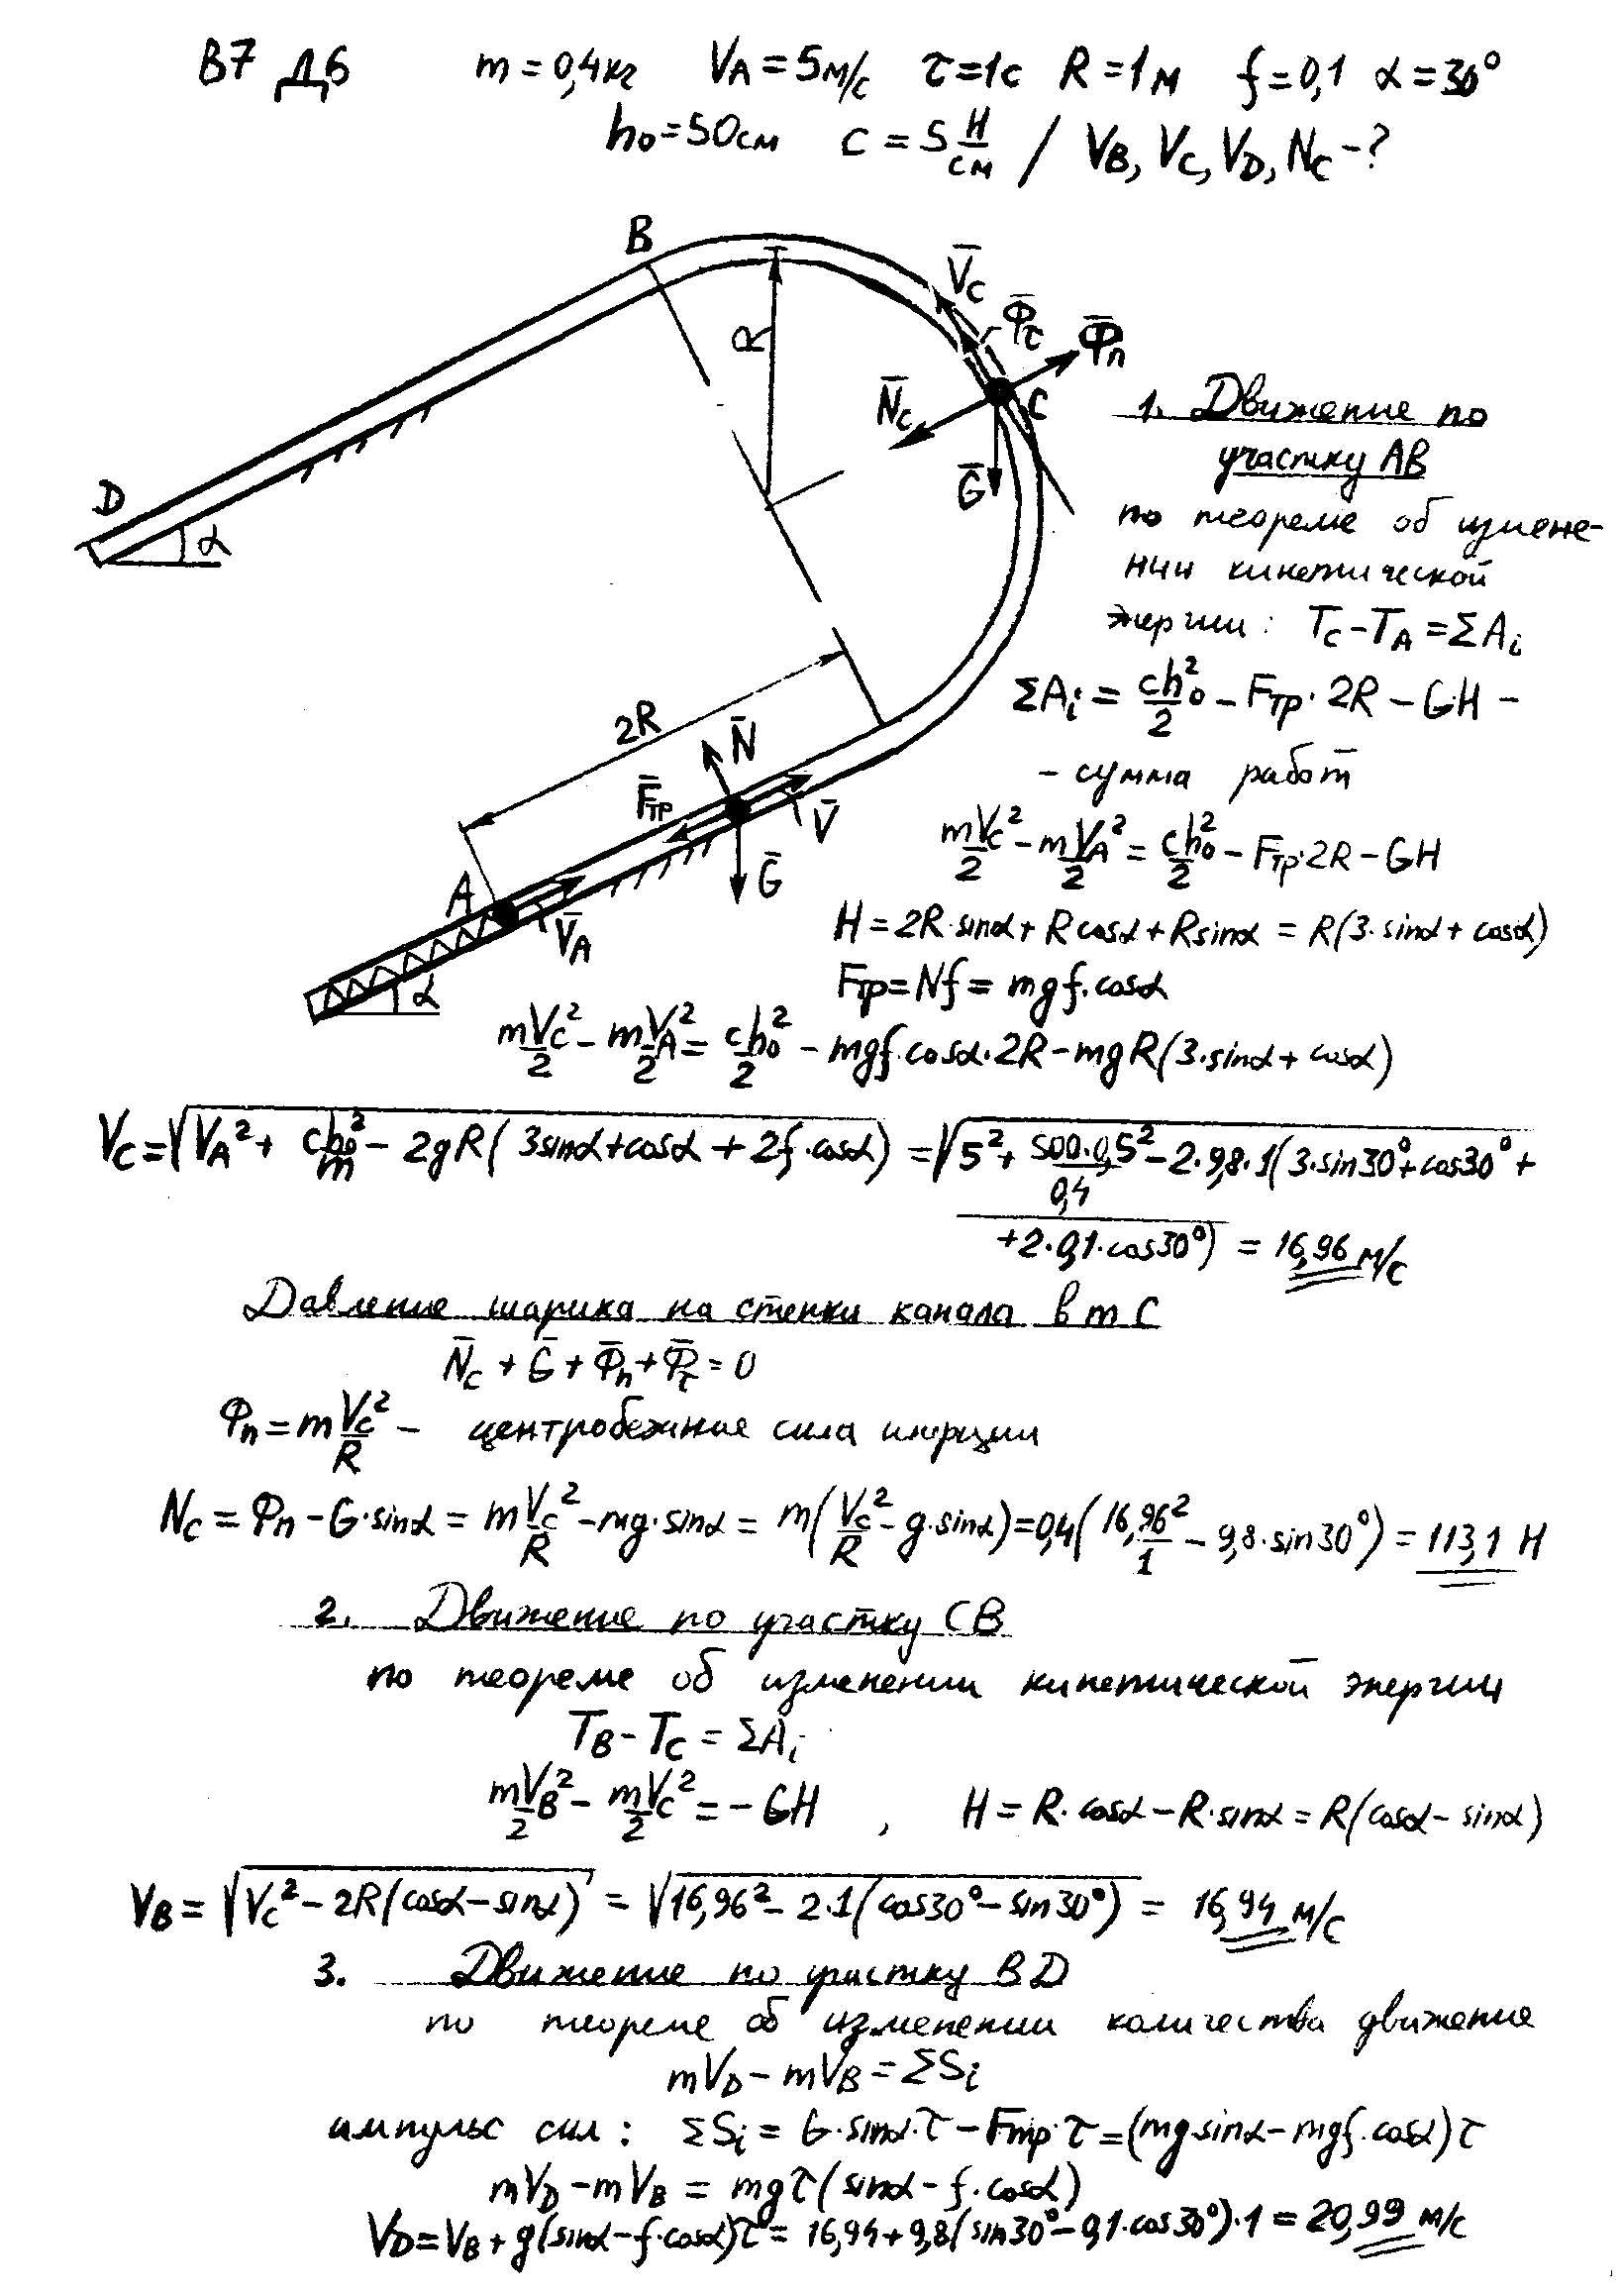 В7 Д6 m = 0,4кг VA = 5м/с τ = 1с R = 1м f = 0,1 α = 30°
h₀ = 50см c = 5 Н/см / VB, VC, VD, NC - ?
B
V̄C
Φ̄τ
Φ̄n
R
N̄C
C
Ḡ
D
α
1. Движение по
участку AB
по теореме об измене-
нии кинетической
энергии: TC - TA = ΣAi
ΣAi = ch₀²/2 - Fтр·2R - G·H -
- сумма работ
2R
N̄
F̄тр
V̄
Ḡ
A
V̄A
α
mVC²/2 - mVA²/2 = ch₀²/2 - Fтр·2R - GH
H = 2R·sinα + Rcosα + Rsinα = R(3·sinα + cosα)
Fтр = Nf = mgf·cosα
mVC²/2 - mVA²/2 = ch₀²/2 - mgf·cosα·2R - mgR(3·sinα + cosα)
VC = √(VA² + ch₀²/m - 2gR(3sinα + cosα + 2f·cosα)) = √(5² + 500·0,5²/0,4 - 2·9,8·1(3·sin30° + cos30° +
+ 2·0,1·cos30°)) = 16,96 м/с
Давление шарика на стенки канала в т C
N̄C + Ḡ + Φ̄n + Φ̄τ = 0
Φn = mVC²/R - центробежная сила инерции
NC = Φn - G·sinα = mVC²/R - mg·sinα = m(VC²/R - g·sinα) = 0,4(16,96²/1 - 9,8·sin30°) = 113,1 Н
2. Движение по участку CB
по теореме об изменении кинетической энергии
TB - TC = ΣAi
mVB²/2 - mVC²/2 = - GH , H = R·cosα - R·sinα = R(cosα - sinα)
VB = √(VC² - 2R(cosα - sinα)) = √(16,96² - 2·1(cos30° - sin30°)) = 16,94 м/с
3. Движение по участку BD
по теореме об изменении количества движение
mVD - mVB = ΣSi
импульс сил: ΣSi = G·sinα·τ - Fтр·τ = (mgsinα - mgf·cosα)τ
mVD - mVB = mgτ(sinα - f·cosα)
VD = VB + g(sinα - f·cosα)τ = 16,94 + 9,8(sin30° - 0,1·cos30°)·1 = 20,99 м/с